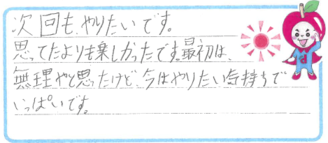 次回も、やりたいです。
思ってたよりも楽しかったです。最初は、
無理やと思ったけど、今はやりたい気持ちで
いっぱいです。